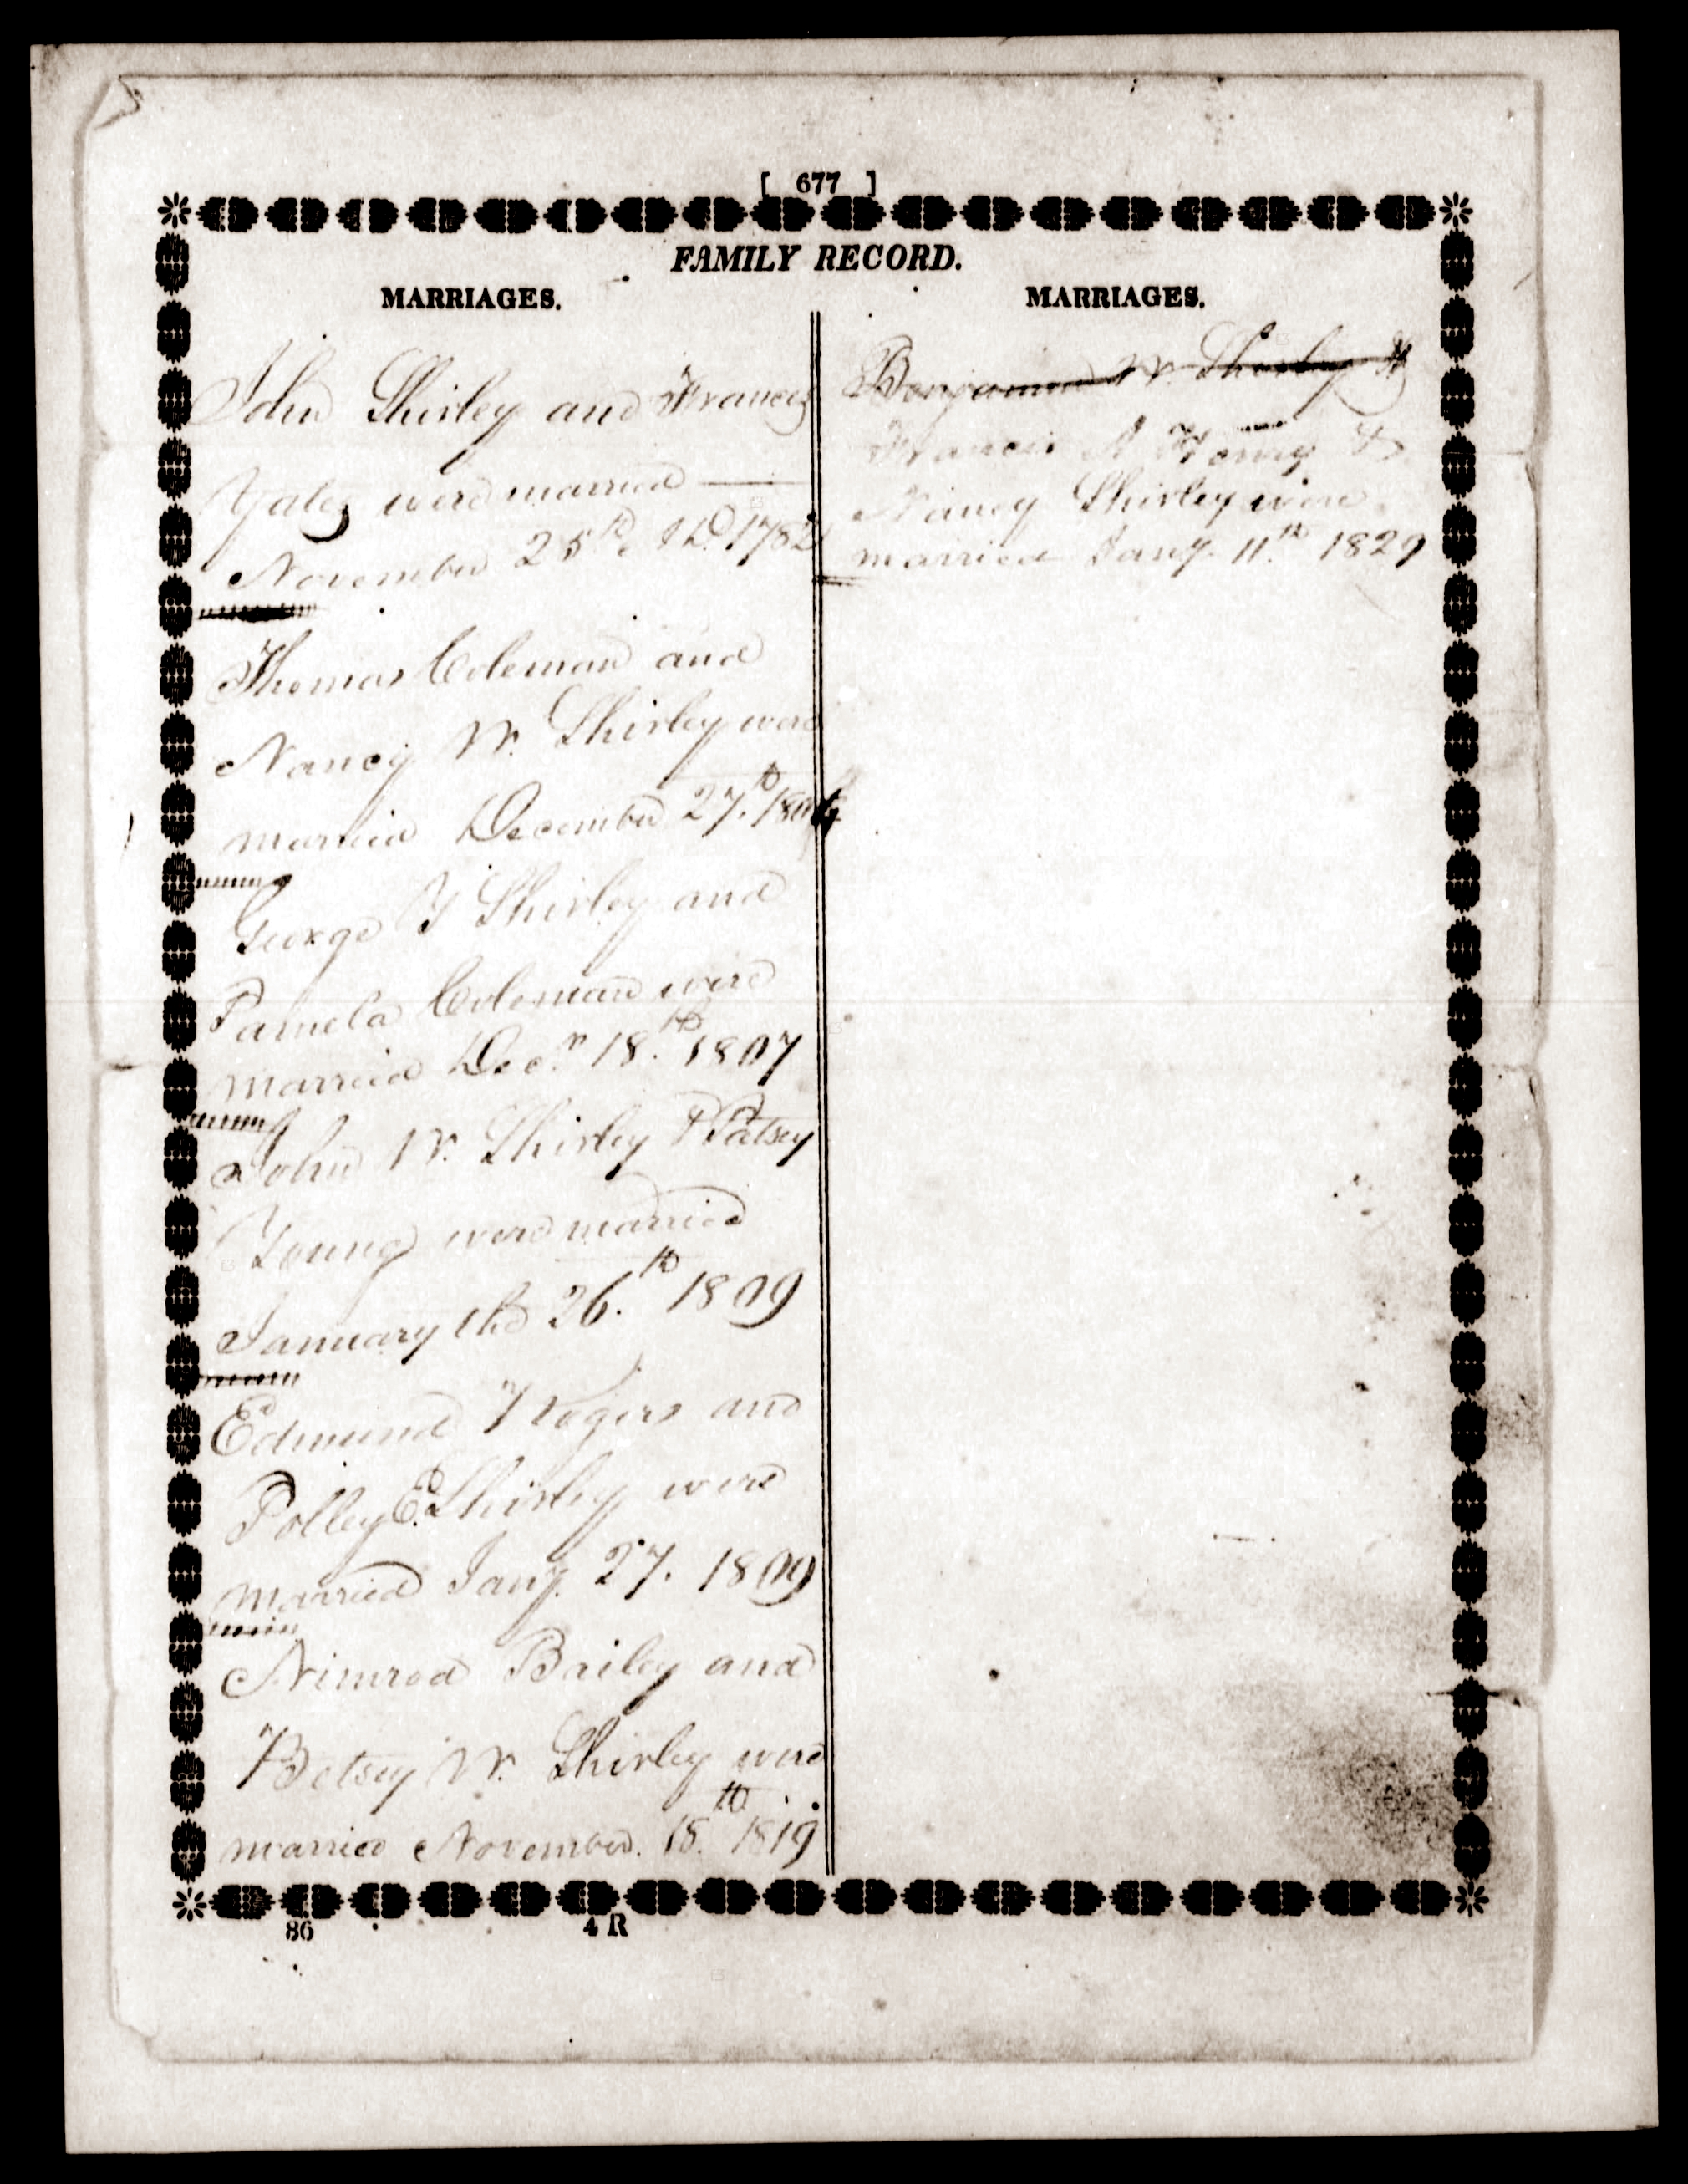 [ 677 ]
FAMILY RECORD.
MARRIAGES.
John Shirley and Frances
Yates were married
November 25th. th. 1782
Thomas Coleman and
Nancy W. Shirley were
married December 27.th
George Y Shirley and
Pamela Coleman were
married Decr. 18.th 1807
John W. Shirley & Patsey
Young were married
January the 26.th 1809
Edmund Rogers and
Polley E. Shirley were
married Jany. 27. 1809
Nimrod Bailey and
Betsey W. Shirley were
married November. 18.th 1819
MARRIAGES.
Benjamin W. Shirley &
Francis A Henry &
Nancy Shirley were
married Jany. 11.th 1829
86
4 R